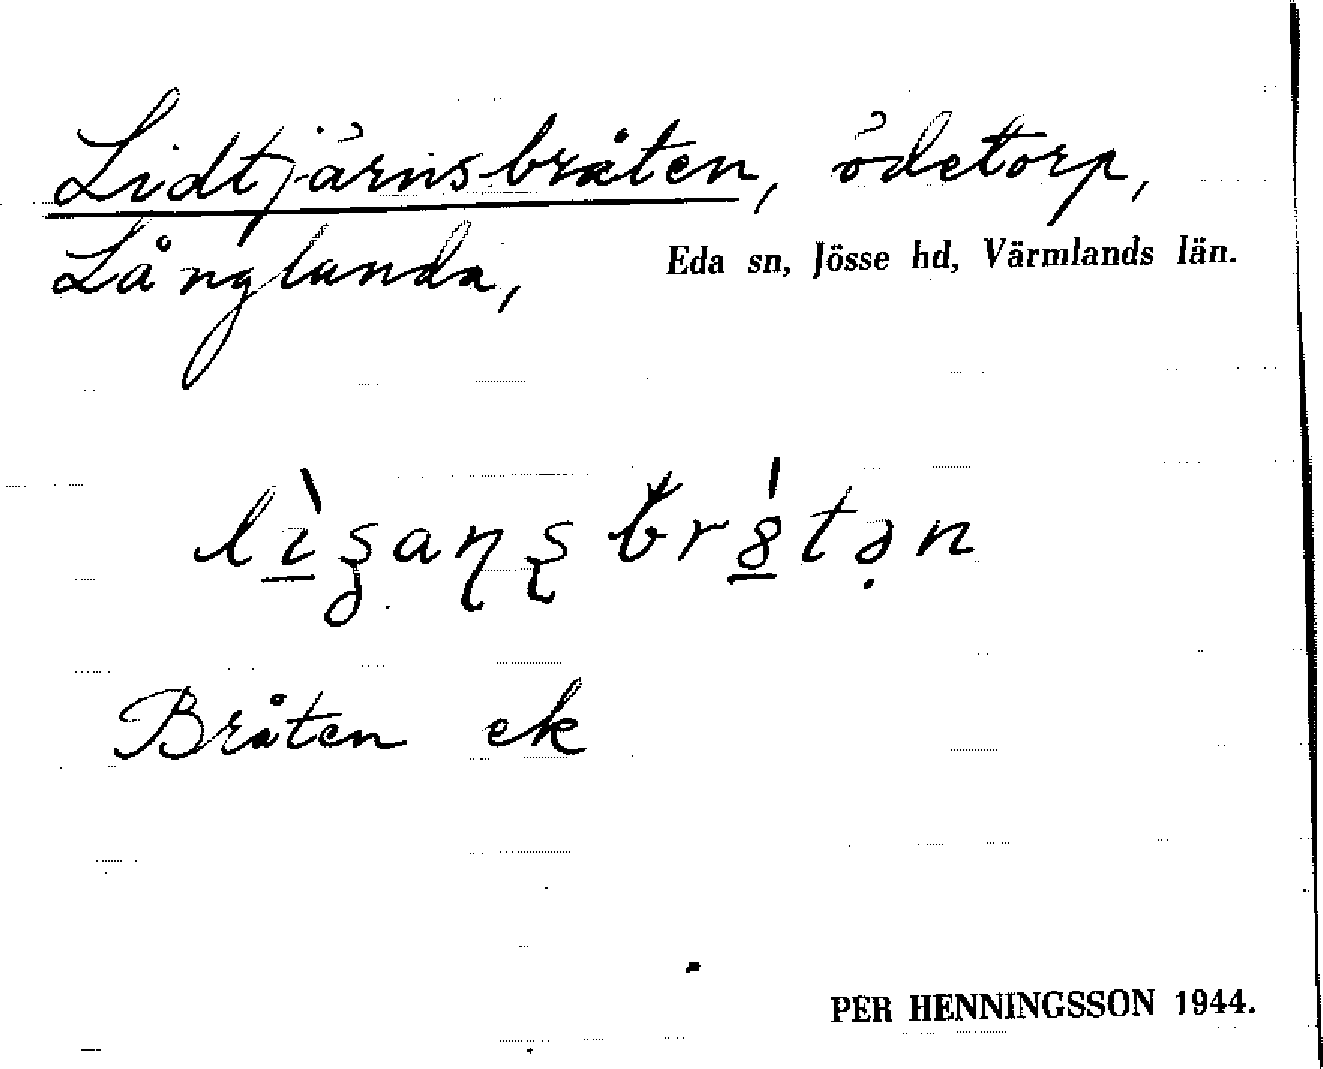 Lidtjärnsbråten, ödetorp,
Långlanda, Eda sn, Jösse hd, Värmlands län.
Bråten ek
PER HENNINGSSON 1944.